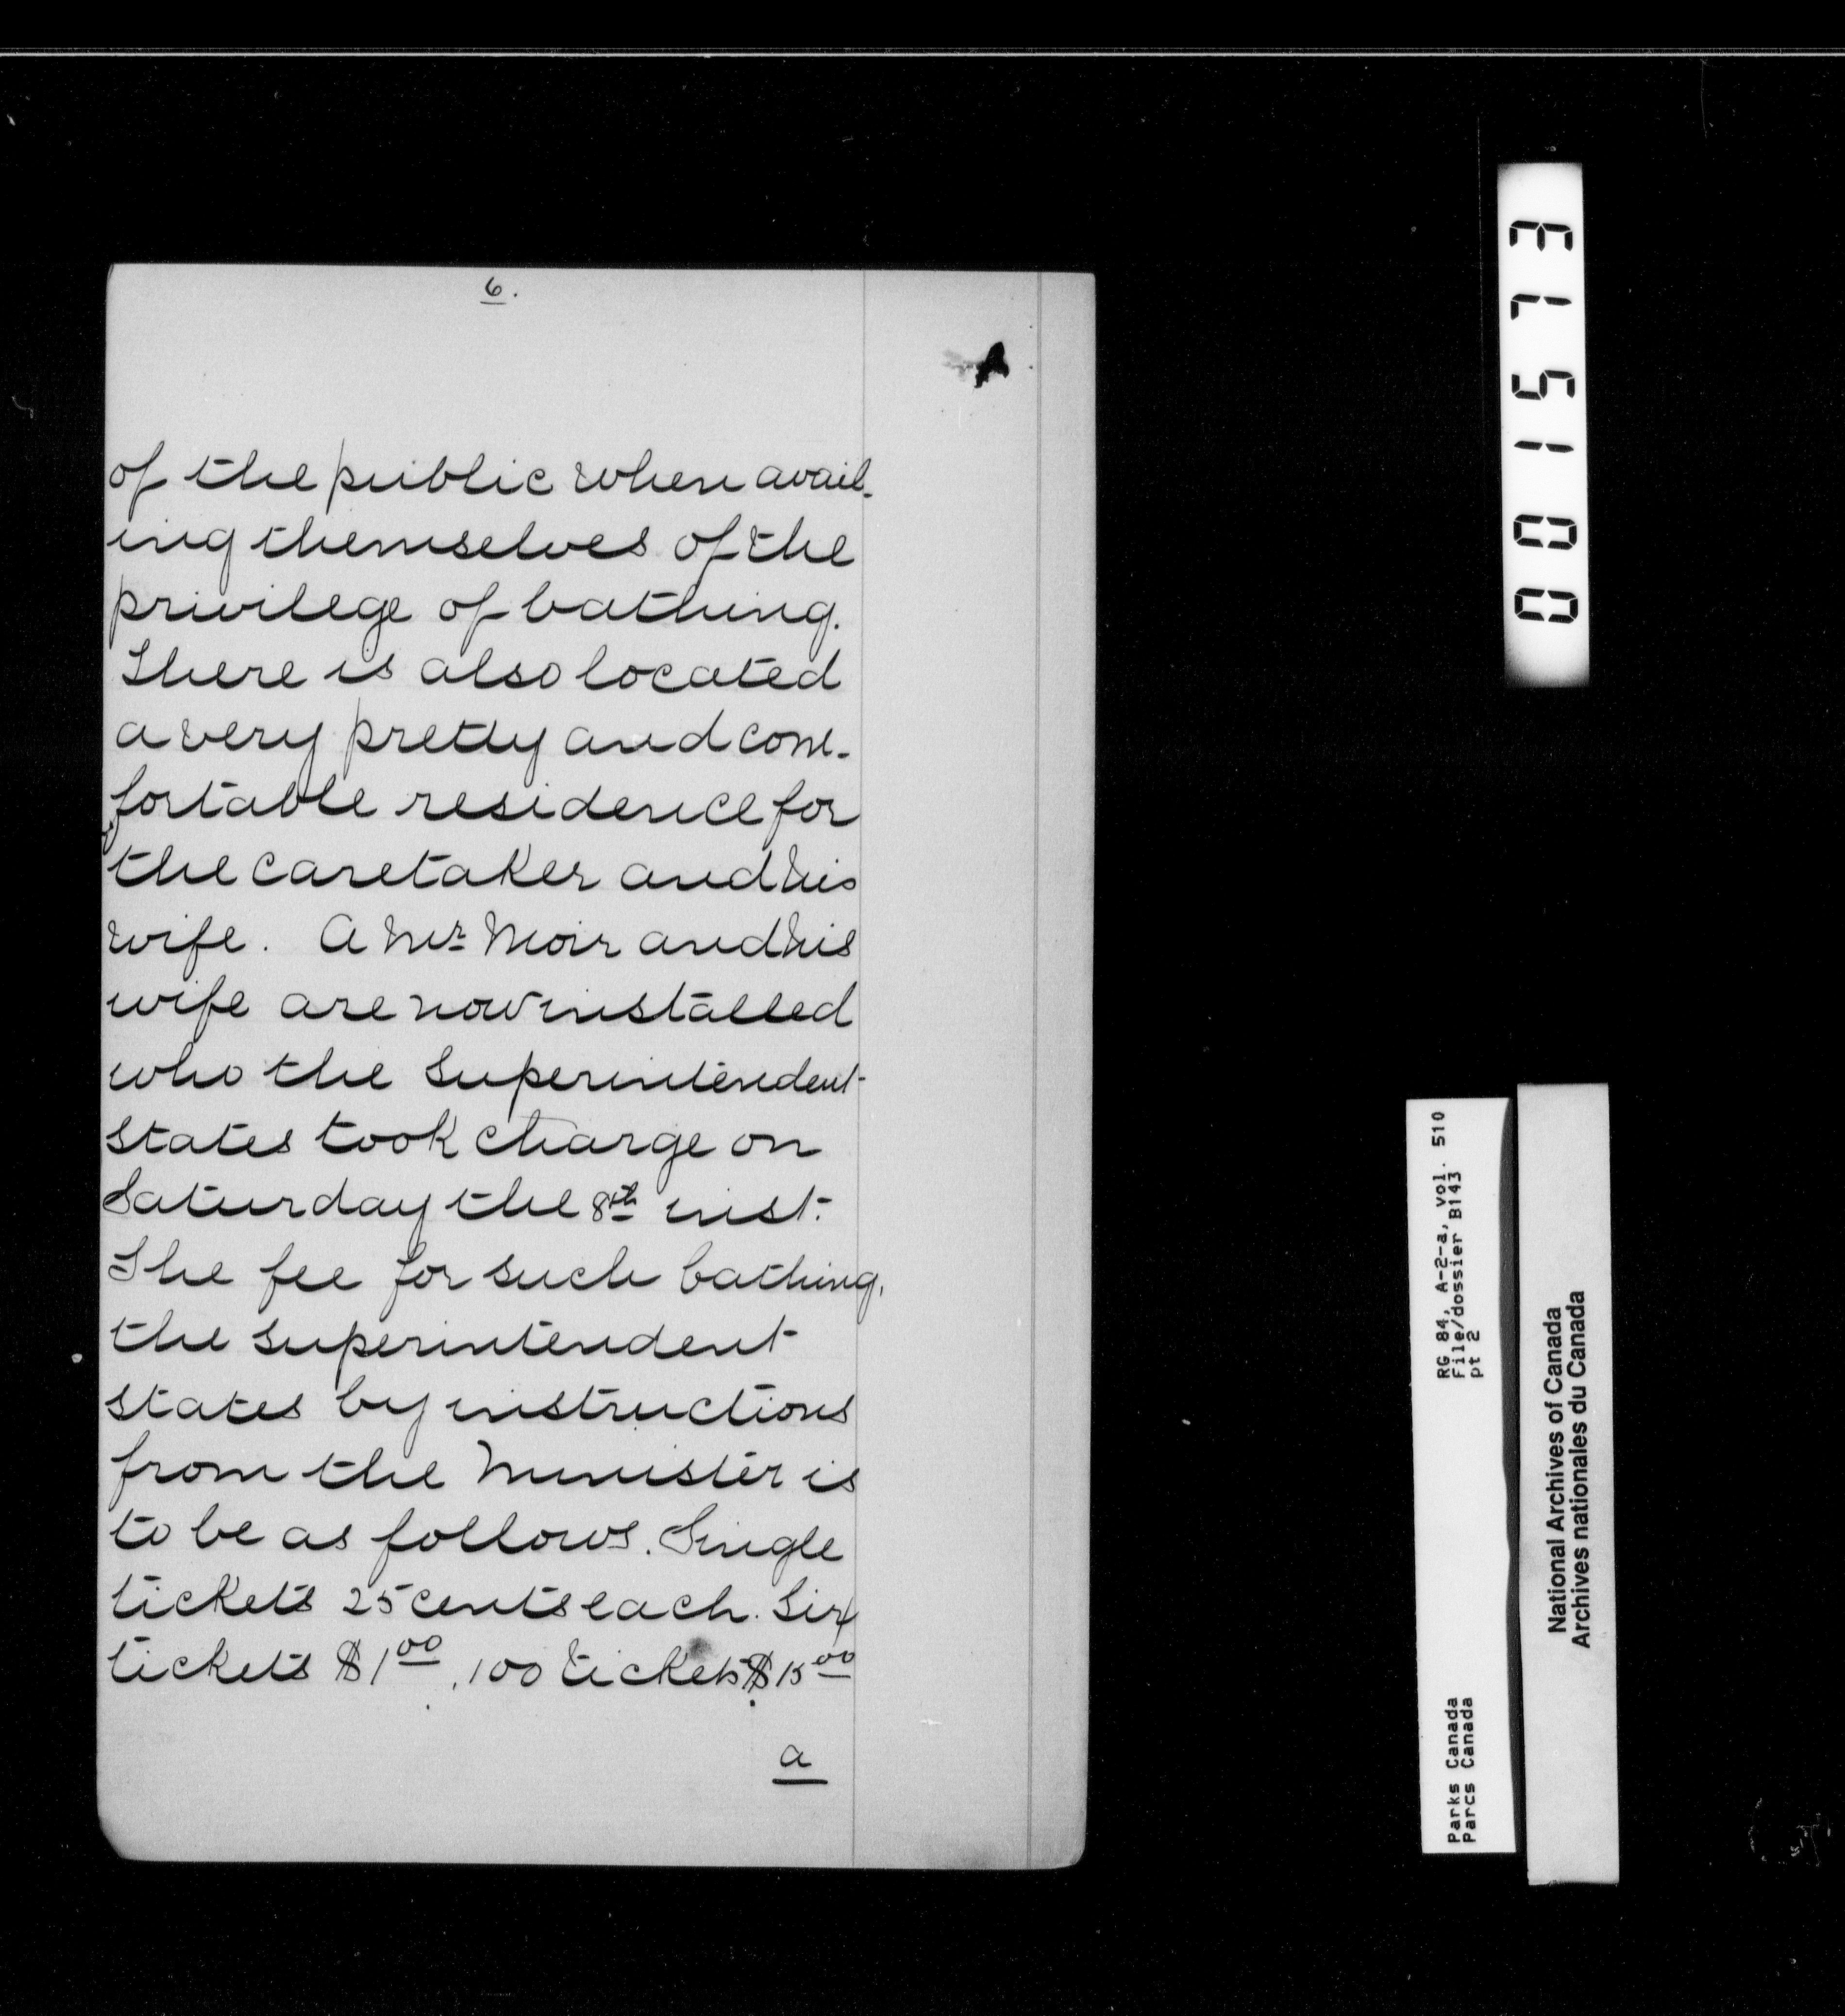 6.
of the public when avail-
ing themselves of the
privilege of bathing.
There is also located
a very pretty and com-
fortable residence for
the caretaker and his
wife. A Mr. Moir and his
wife are now installed
who the Superintendent
states took charge on
Saturday the 8th inst.
The fee for such bathing,
the Superintendent
states by instructions
from the Minister is
to be as follows. Single
tickets 25 cents each. Six
tickets $1.00, 100 tickets $15.00
a
001573
RG 84, A-2-a, vol. 510
File/dossier B143
pt 2
Parks Canada
Parcs Canada
National Archives of Canada
Archives nationales du Canada